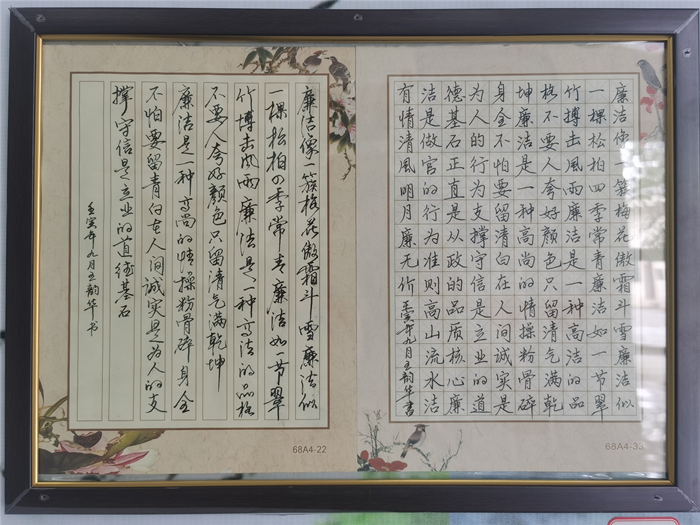 廉洁像一簇梅花傲霜斗雪廉洁似
一棵松柏四季常青廉洁如一节翠
竹搏击風雨廉洁是一种高洁的品
格不要人夸好颜色只留清气满乾
坤廉洁是一种高尚的情操粉骨碎
身全不怕要留清白在人间诚实是
为人的行为支撑守信是立业的道
德基石正直是从政的品质核心廉
洁是做官的行为准则高山流水洁
有情清風明月廉无价 壬寅年九月韵华书
68A4-33
廉洁像一簇梅花傲霜斗雪廉洁似
一棵松柏四季常青廉洁如一节翠
竹搏击风雨廉洁是一种高洁的品格
不要人夸好颜色只留清气满乾坤
廉洁是一种高尚的情操粉骨碎身全
不怕要留青白在人间诚实是为人的支
撑守信是立业的道德基石
壬寅年九月韵华书
68A4-22